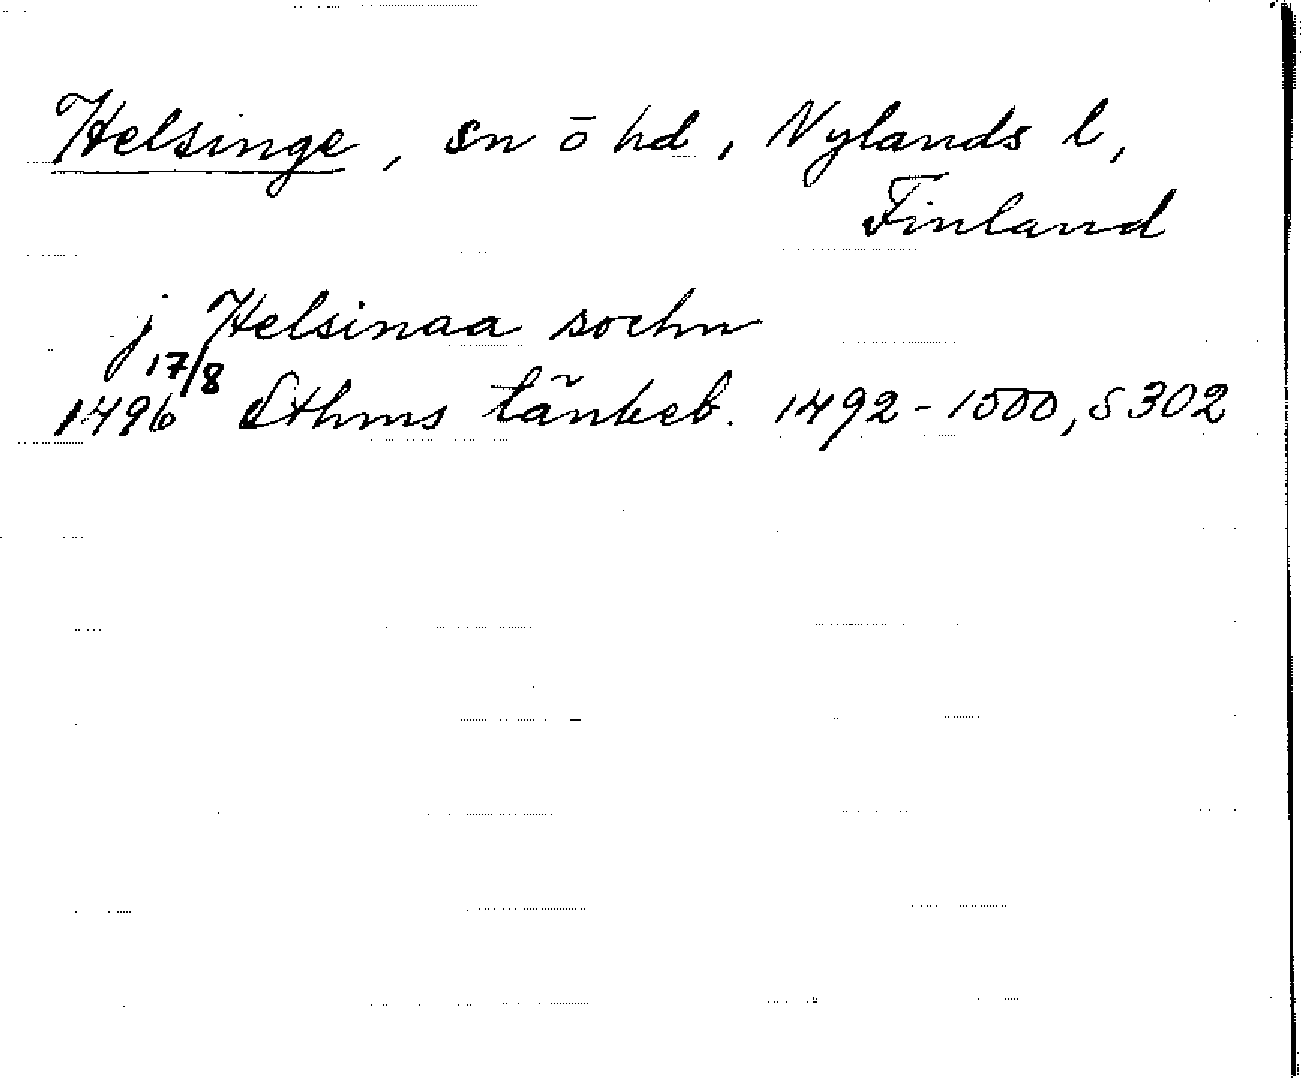 Helsinge, sn ö hd, Nylands l,
Finland
j Helsinaa sochn
17/8
1496 Sthms tänkeb. 1492-1500, S 302